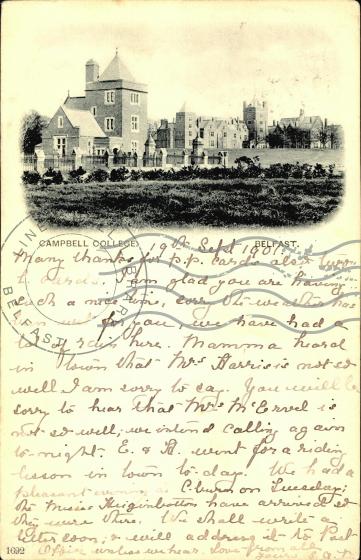 CAMPBELL COLLEGE. BELFAST.
19th Sept 1901.
Many thanks for p.p. cards also two
cards. I am glad you are having
such a nice time, sorry the weather has
been wet for you, we have had a
lot of rain here. Mamma heard
in town that Mrs Harris is not so
well I am sorry to say. You will be
sorry to hear that Mrs McCervel is
not so well; we intend calling again
to-night. E. & A. went for a riding
lesson in town to-day. We had a
pleasant evening at C'burn on Tuesday;
the Misses Higginbotham have arrived so
they were there. We shall write a
letter soon, & will address it to Post
Office unless we hear. Love from all
1692